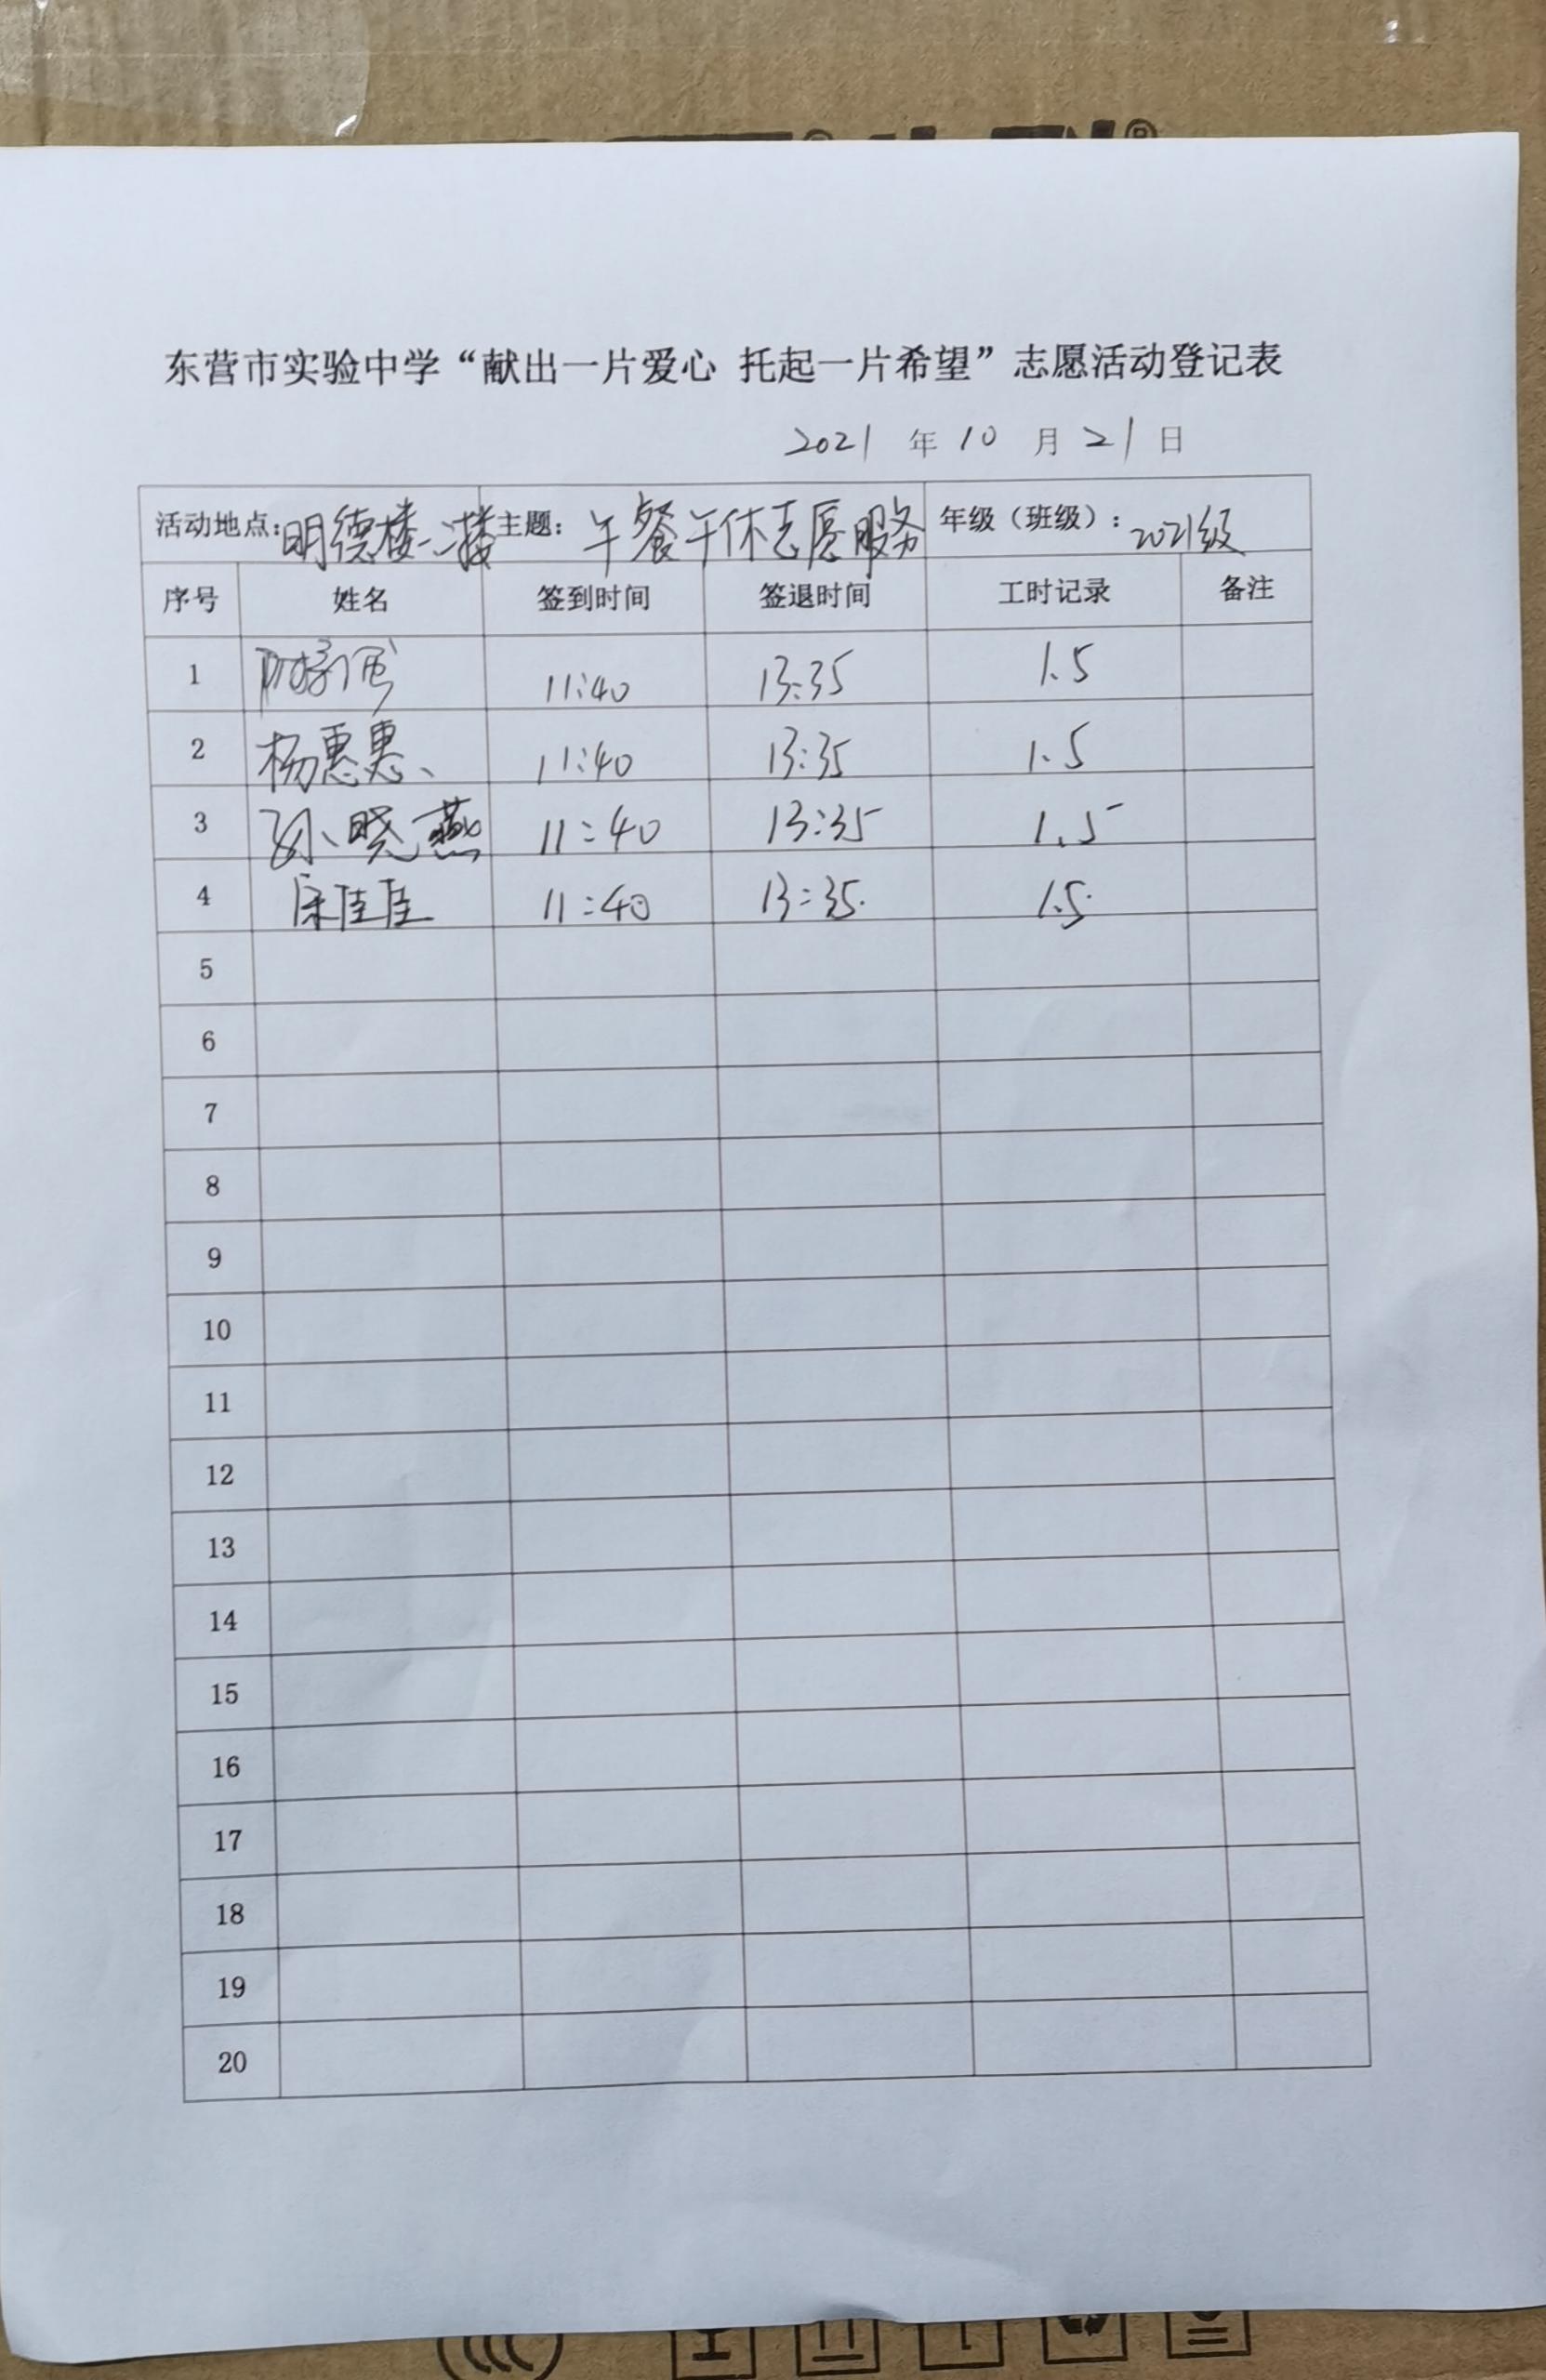 东营市实验中学“献出一片爱心 托起一片希望”志愿活动登记表
2021 年 10 月 21 日
活动地点：明德楼二楼 主题：午餐午休志愿服务 年级（班级）：2021级
序号 姓名 签到时间 签退时间 工时记录 备注
1 11:40 13:35 1.5
2 杨惠惠、 11:40 13:35 1.5
3 孙晓燕 11:40 13:35 1.5
4 佳佳 11:40 13:35 1.5
5
6
7
8
9
10
11
12
13
14
15
16
17
18
19
20